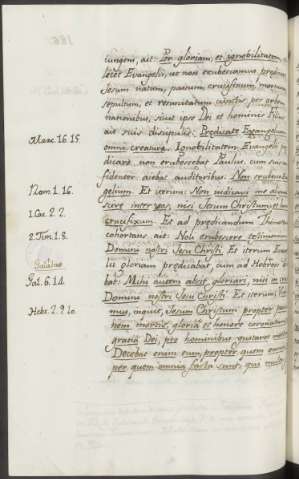 cungem, ait: Per gloriam, et ignobilitatem
Evangelii, ut non erubescamus
Jesum natum, passum, crucifixum, mortuum
sepultum, et resuscitatum
nationibus, sicut ipse Dei et hominis Filius
ait suis discipulis: Predicate Evangelium
Marc. 16. 15.
omni creaturæ. Ignobilitatem Evangelii
non erubescebat Paulus, cum
fidenter aiebat auditoribus: Non erubesco
Rom. 1. 16.
gelium. Et iterum: Non judicavi me
1. Cor. 2. 2.
scire inter vos, nisi Jesum Christum, et
crucifixum. Et ad predicandum
2. Tim. 1. 8.
cohortans ait: Noli erubescere testimonium
Domini nostri Jesu Christi. Et iterum
gloriam predicabat, cum ad
Galatas
Gal. 6. 14.
bat: Mihi autem absit gloriari, nisi in
Domini nostri Jesu Christi. Et iterum
Hebr. 2. 9. 10.
mus, inquit, Jesum Christum propter
nem mortis, gloria et honore coronatum
gratia Dei, pro hominibus gustaret
Decebat enim eum, propter quem omnia
per quem omnia facta sunt, qui